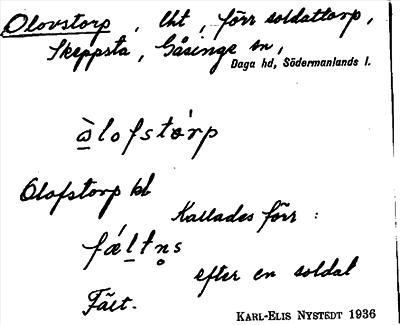 Olovstorp, lht, förr soldattorp,
Skeppsta, Gåsinge sn,
Daga hd, Södermanlands l.
òlofstórp
Olofstorp kl
Kallades förr :
fǽltn̥s
efter en soldat
Fält.
KARL-ELIS NYSTEDT 1936